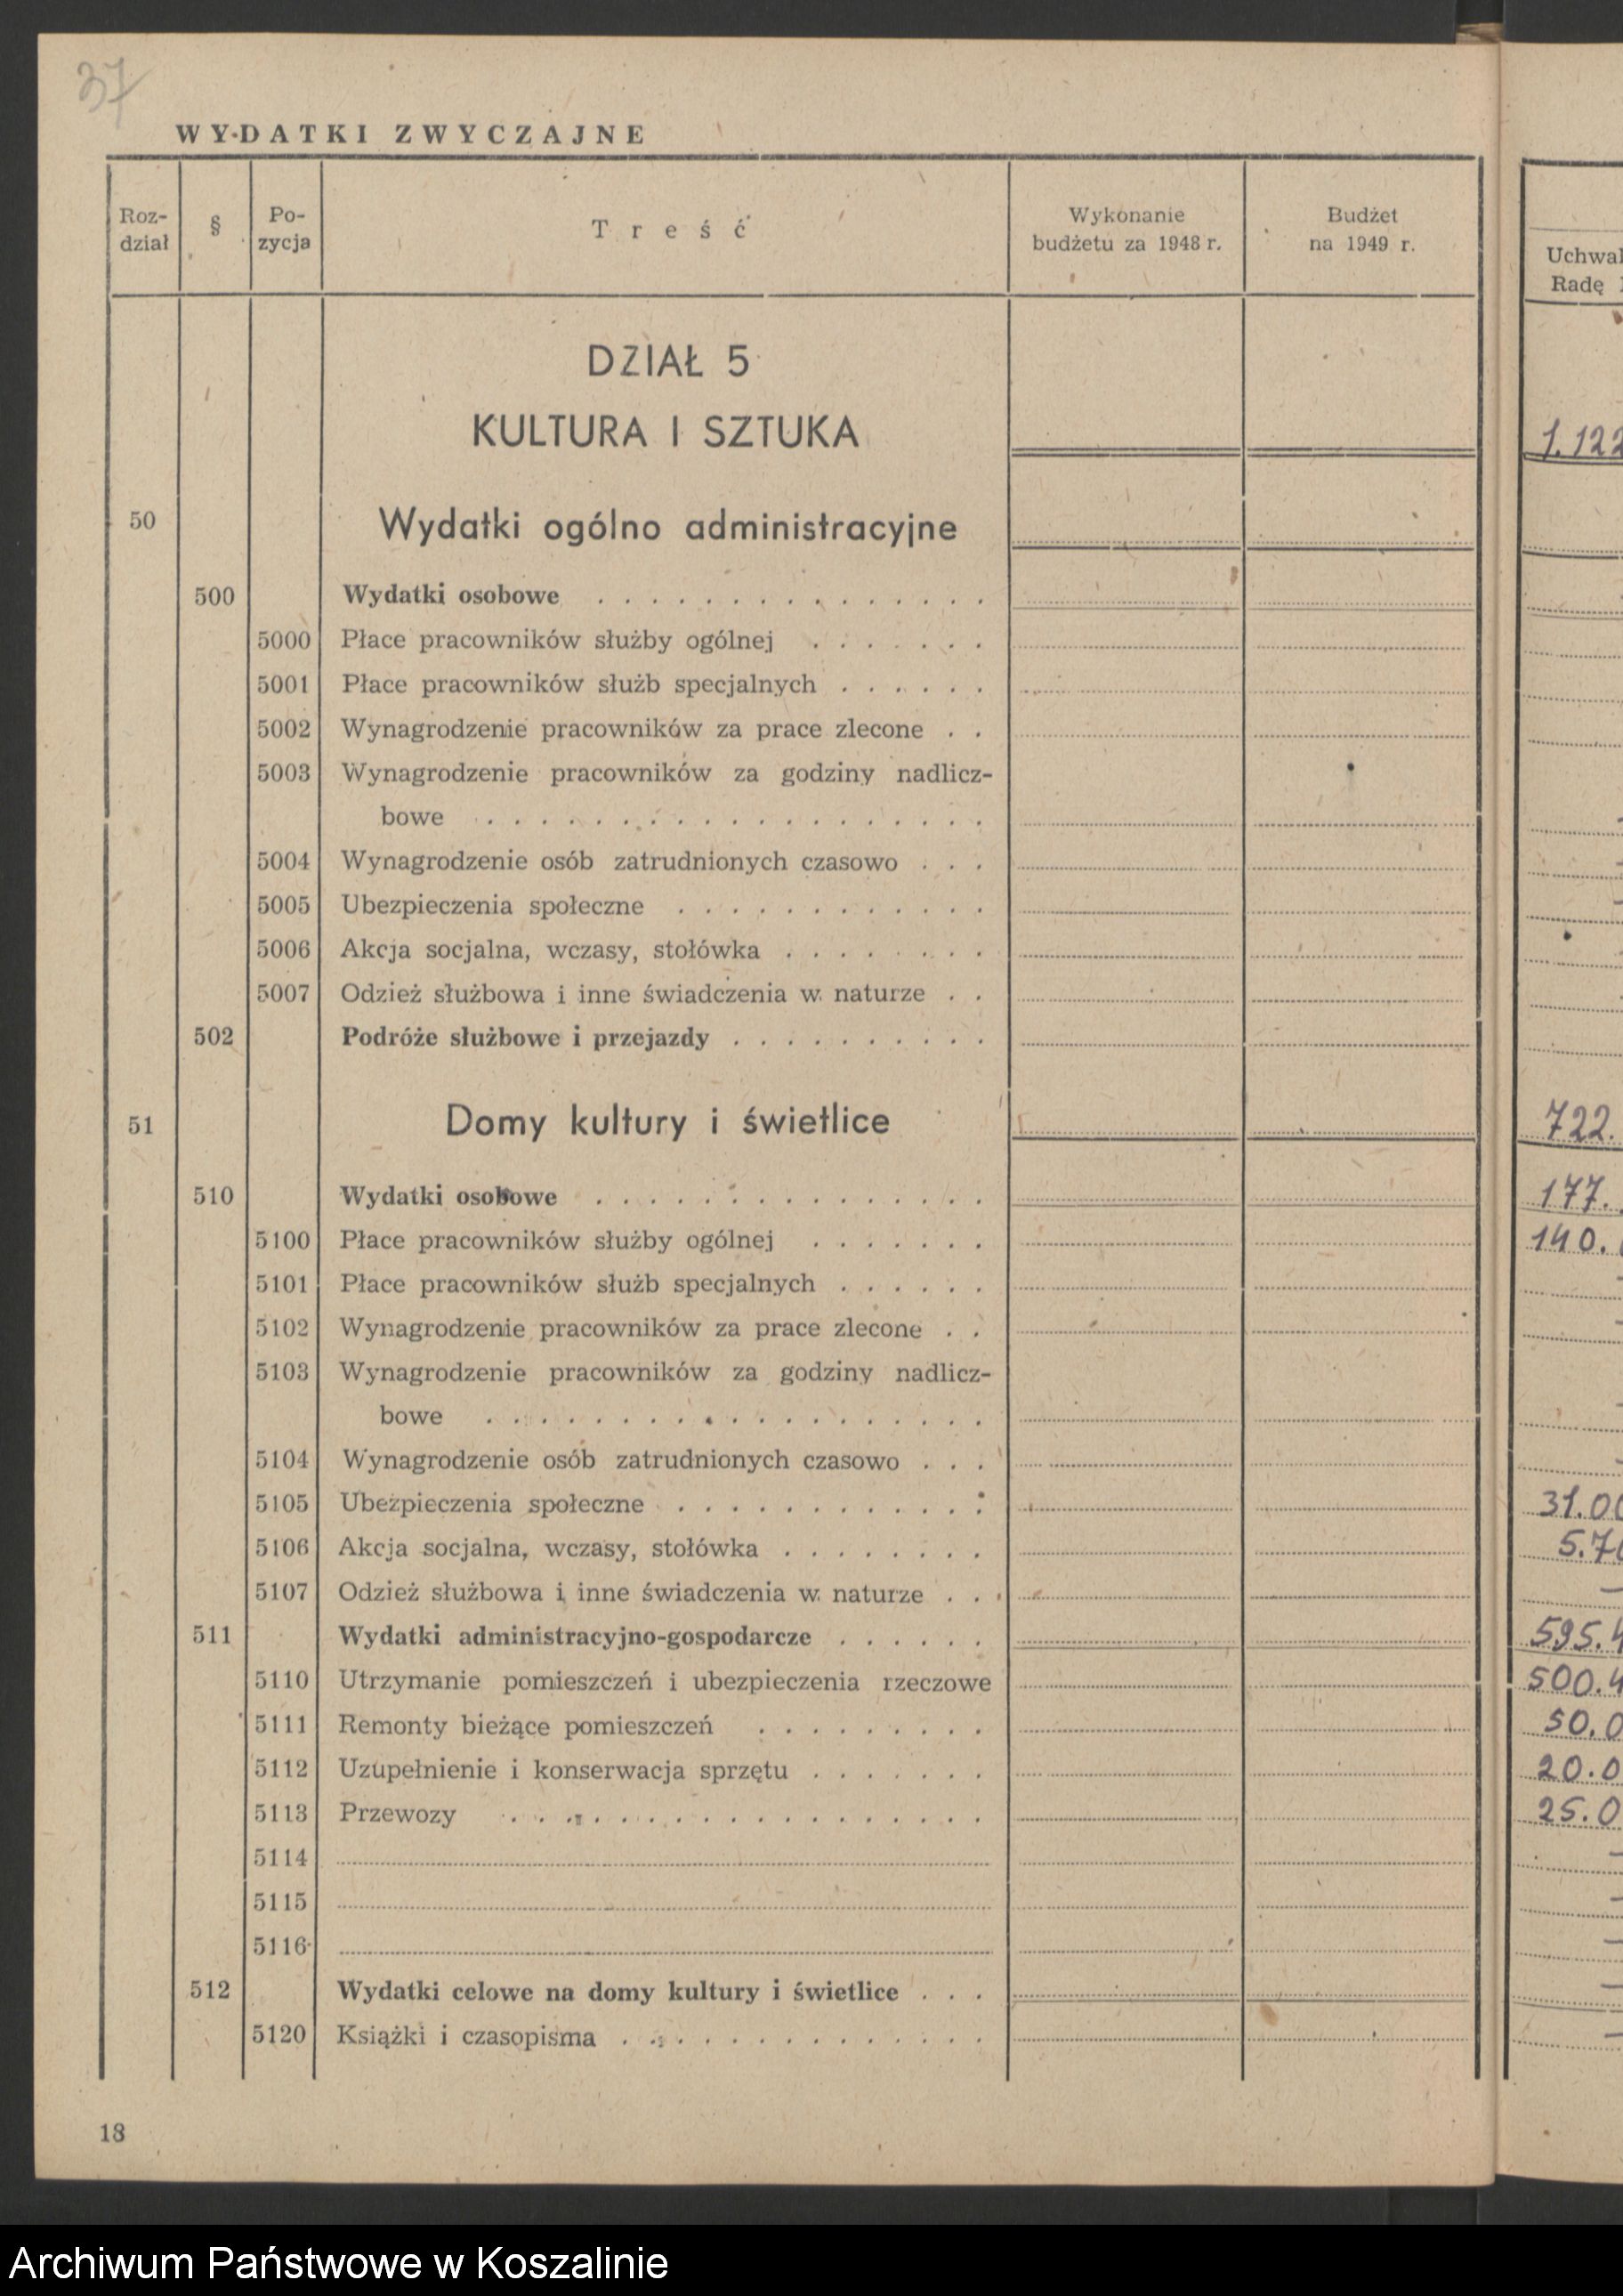 37
WYDATKI ZWYCZAJNE
Roz-
dział
§
Po-
zycja
Treść
Wykonanie
budżetu za 1948 r.
Budżet
na 1949 r.
Radę
DZIAŁ 5
KULTURA I SZTUKA
1.122
50 Wydatki ogólno administracyjne
500 Wydatki osobowe
5000 Płace pracowników służby ogólnej
5001 Płace pracowników służb specjalnych
5002 Wynagrodzenie pracowników za prace zlecone
5003 Wynagrodzenie pracowników za godziny nadlicz-
bowe
5004 Wynagrodzenie osób zatrudnionych czasowo
5005 Ubezpieczenia społeczne
5006 Akcja socjalna, wczasy, stołówka
5007 Odzież służbowa i inne świadczenia w naturze
502 Podróże służbowe i przejazdy
51 Domy kultury i świetlice 722.
510 Wydatki osobowe 177.
5100 Płace pracowników służby ogólnej 140.
5101 Płace pracowników służb specjalnych
5102 Wynagrodzenie pracowników za prace zlecone
5103 Wynagrodzenie pracowników za godziny nadlicz-
bowe
5104 Wynagrodzenie osób zatrudnionych czasowo
5105 Ubezpieczenia społeczne 31.0
5106 Akcja socjalna, wczasy, stołówka 5.7
5107 Odzież służbowa i inne świadczenia w naturze
511 Wydatki administracyjno-gospodarcze 595.4
5110 Utrzymanie pomieszczeń i ubezpieczenia rzeczowe 500.4
5111 Remonty bieżące pomieszczeń 50.0
5112 Uzupełnienie i konserwacja sprzętu 20.0
5113 Przewozy 25.0
5114
5115
5116
512 Wydatki celowe na domy kultury i świetlice
5120 Książki i czasopisma
18
Archiwum Państwowe w Koszalinie